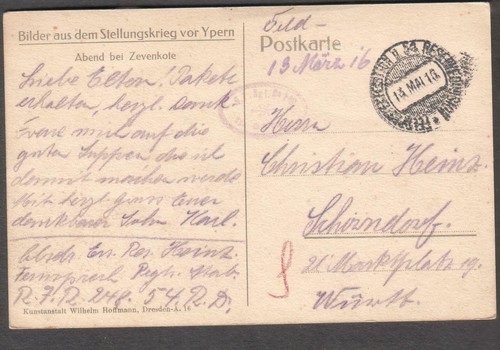 Bilder aus dem Stellungskrieg vor Ypern
Abend bei Zevenkote
Liebe Eltern! Pakete
erhalten, herzl. Dank
Freue mich auf die
guten Suppen die ich
damit machen werde
Mit herzl. Gruss Euer
dankbarer Sohn Karl.
Absdr. En. Res. Heinz.
Fernsprech Regts. Stab.
R. I. R. 248. 54. R. D.
Kunstanstalt Wilhelm Hoffmann, Dresden-A. 16
Feld-
Postkarte
13 März 16
FELDPOSTEXPEDITION D. 54. RESERVEDIVISION
14. MAI. 16
Herrn
Christian Heinz.
Schorndorf.
Marktplatz
Württ.